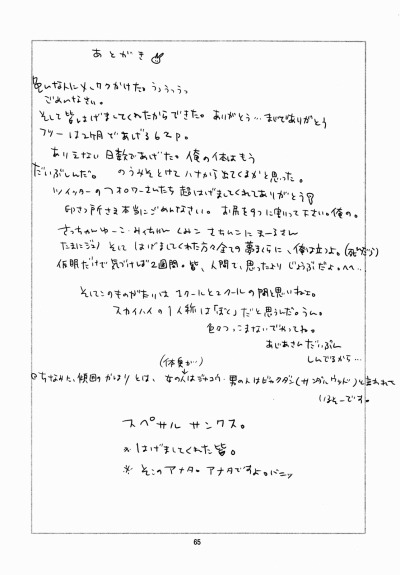 あとがき
色んな人にメーワクかけた。うっうっうっ
ごめんなさい。
そして皆はげましてくれたからできた。ありがとう…まじでありがとう
フツーは2ヶ月であげる62P。
ありえない日数であげた。俺の体はもう
だいぶしんだ。のうみそとけてハナから出てくるかと思った。
ツイッターのフォロワーさんたち超はげましてくれてありがとう
印さつ所さま本当にごめんなさい。お尻を9つに割って下さい。俺の。
さっちゃん ゆーこ みくちゃん くみこ さちんこ にまーるさん
たまにジュノ そして はげましてくれた方々全ての夢まくらに、俺は立つよ。
仮眠だけで気づけば2週間。皆、人間て、思ったよりじょうぶだよ。へへ…
そしてこのものがたりは1クールと2クールの間と思いねぇ。
スカイハイの1人称は「ぼく」だと思うんだ。うん。
色々つっこまないでやってね。
あじあさんだいぶん
しんでるから…
(体臭が…)
ちなみに、傾国のかほりとは、女の人はジャコウ・男の人はビャクダン(サンダルウッド)と言われて
いるそーです。
スペサル サンクス。
※ はげましてくれた皆。
※ そこのアナタ。アナタですよ。バニッ
65